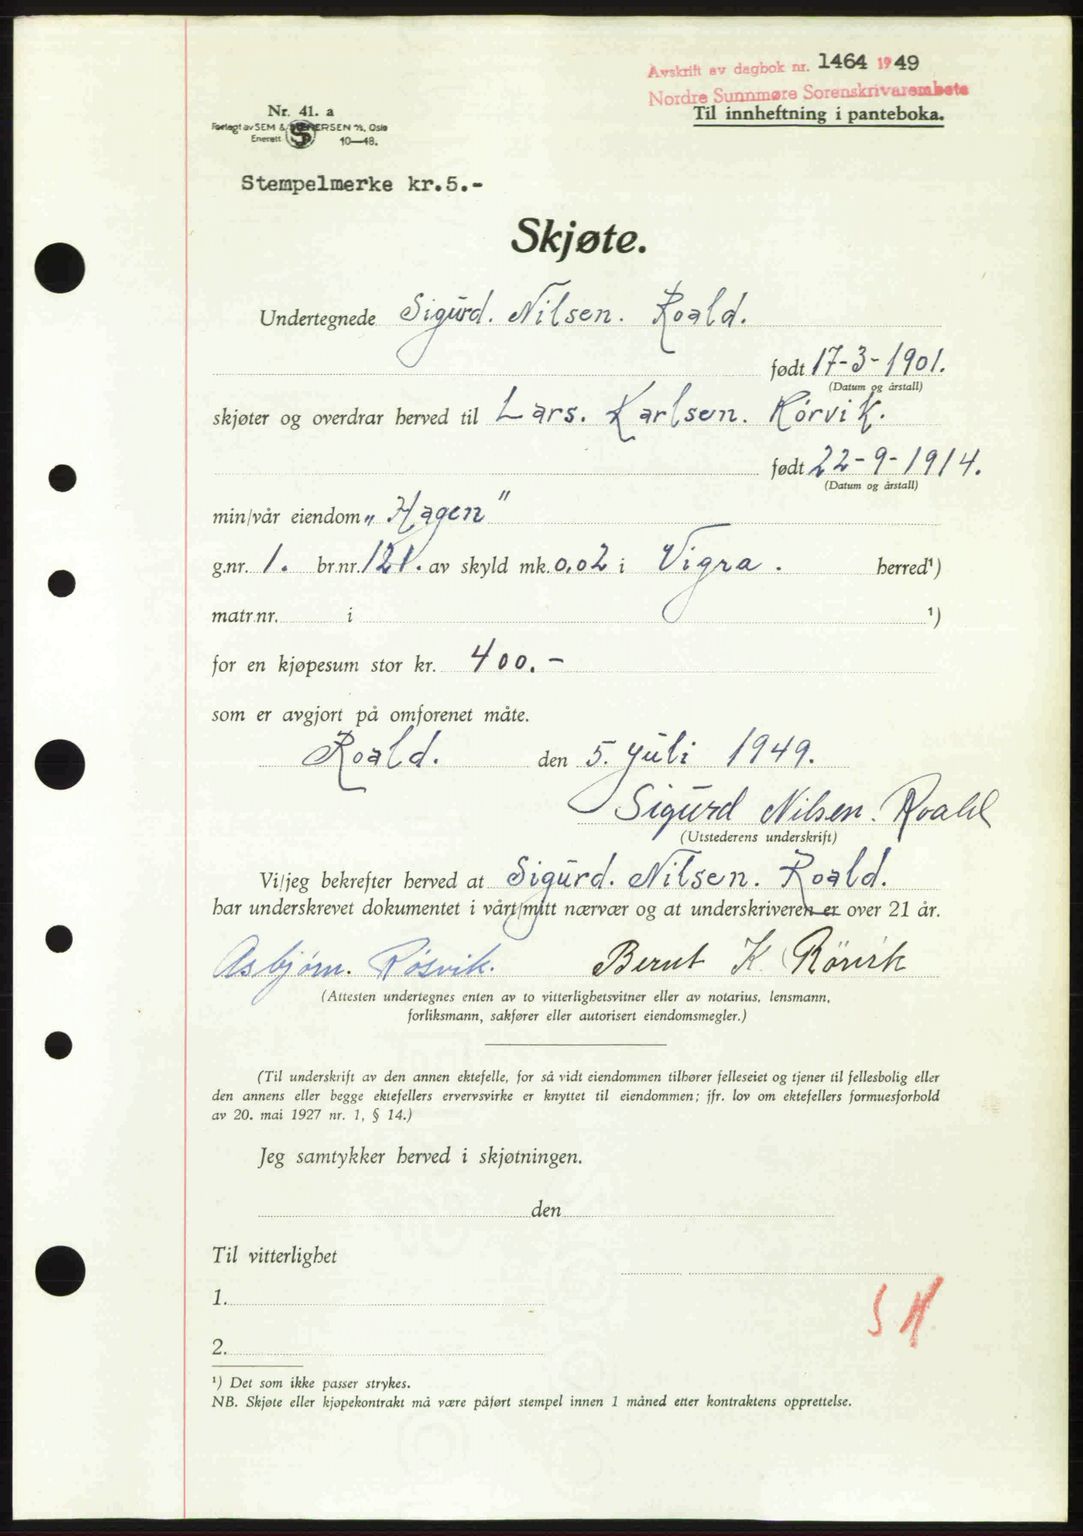 Avskrift av dagbok nr. 1464 1949
Nordre Sunnmøre Sorenskrivarembete
Til innheftning i panteboka.
Nr. 41. a
Forlagt av SEM & STENERSEN A/S, Oslo
Enerett 10—48.
Stempelmerke kr.5.-
Skjøte.
Undertegnede Sigurd. Nilsen. Roald.
født 17-3-1901.
(Datum og årstall)
skjøter og overdrar herved til Lars. Karlsen. Rörvik.
født 22-9-1914.
(Datum og årstall)
min/vår eiendom „Hagen"
g.nr. 1. br.nr. 121. av skyld mk. 0,02 i Vigra. herred¹)
matr.nr. i ¹)
for en kjøpesum stor kr. 400.-
som er avgjort på omforenet måte.
Roald. den 5. juli 1949.
Sigurd Nilsen. Roald
(Utstederens underskrift)
Vi/jeg bekrefter herved at Sigurd. Nilsen. Roald.
har underskrevet dokumentet i vårt/mitt nærvær og at underskriveren er over 21 år.
Asbjørn. Røsvik. Bernt K. Rörvik
(Attesten undertegnes enten av to vitterlighetsvitner eller av notarius, lensmann,
forliksmann, sakfører eller autorisert eiendomsmegler.)
(Til underskrift av den annen ektefelle, for så vidt eiendommen tilhører felleseiet og tjener til fellesbolig eller
den annens eller begge ektefellers ervervsvirke er knyttet til eiendommen; jfr. lov om ektefellers formuesforhold
av 20. mai 1927 nr. 1, § 14.)
Jeg samtykker herved i skjøtningen.
den
Til vitterlighet
1.
2.
¹) Det som ikke passer strykes.
NB. Skjøte eller kjøpekontrakt må være påført stempel innen 1 måned etter kontraktens opprettelse.